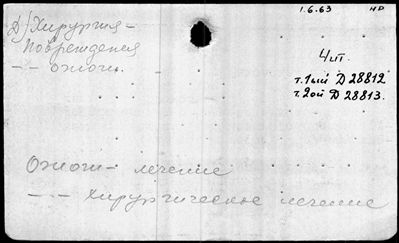 1.6.63 нр
Д) Хирургия -
Повреждения
- - ожоги.
4 шт.
т. 1ый Д 28812
т. 2ой Д 28813.
Ожоги - лечение
- - хирургическое лечение